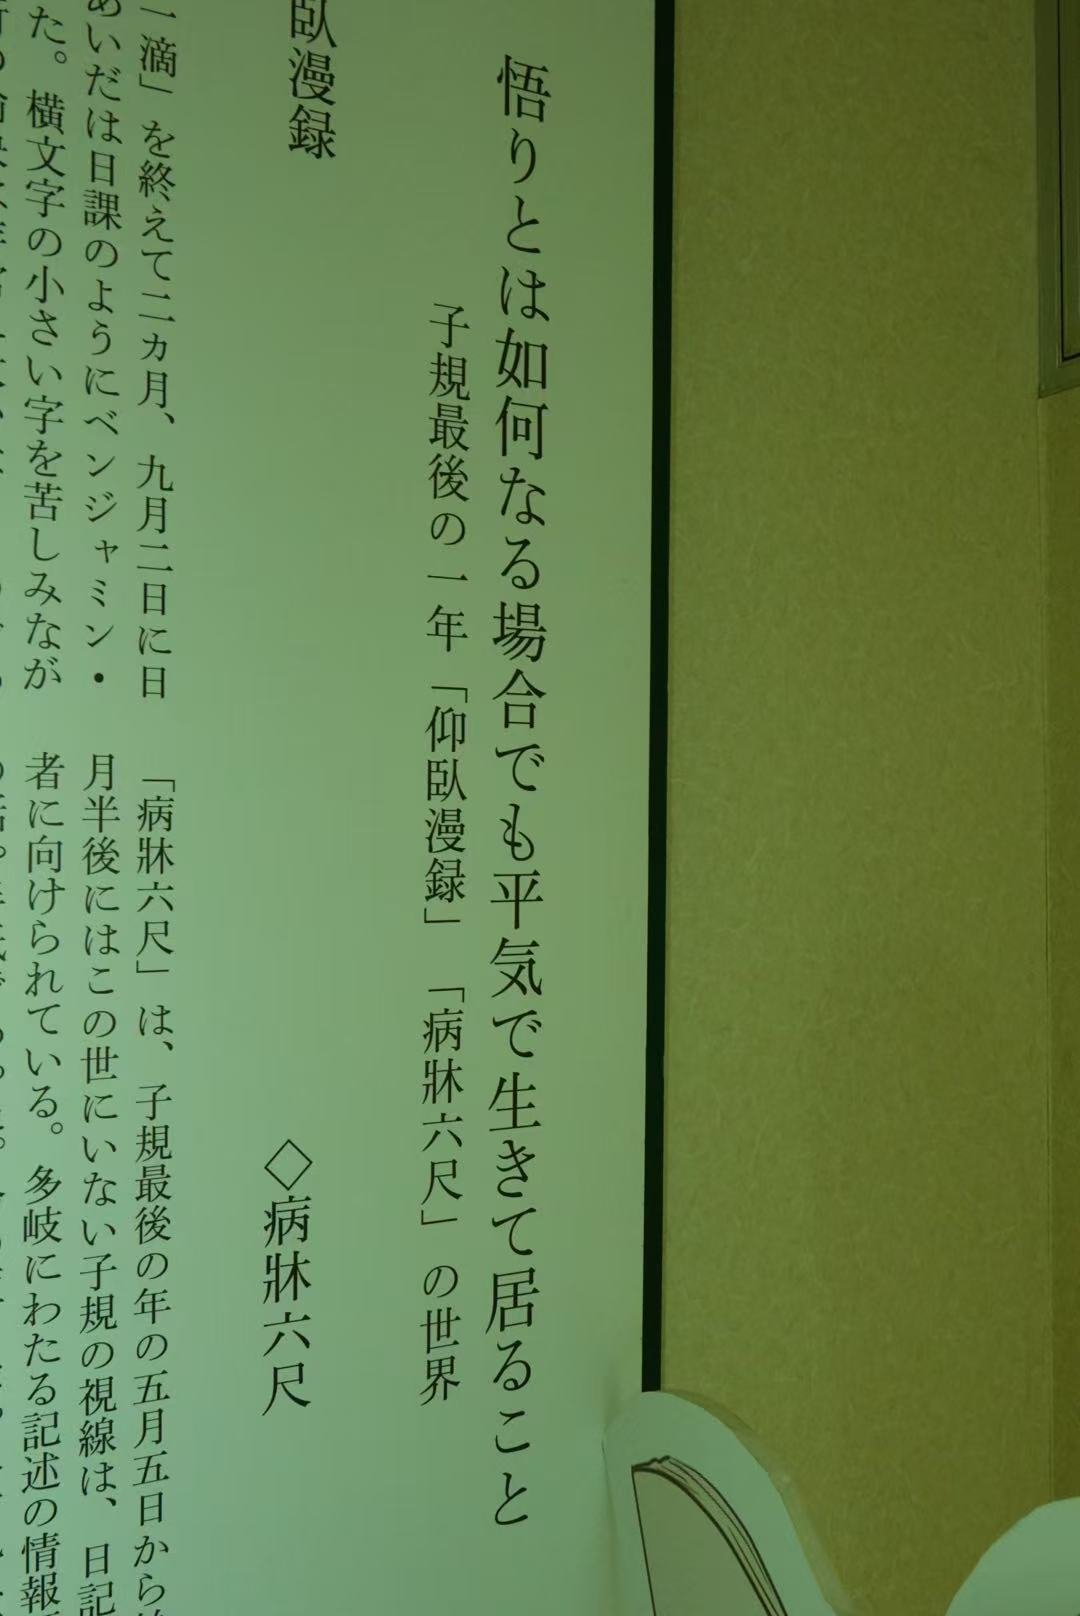 悟りとは如何なる場合でも平気で生きて居ること
子規最後の一年「仰臥漫録」「病牀六尺」の世界
臥漫録
一滴」を終えて二ヵ月、九月二日に日
あいだは日課のようにベンジャミン・
た。横文字の小さい字を苦しみなが
◇病牀六尺
「病牀六尺」は、子規最後の年の五月五日から
月半後にはこの世にいない子規の視線は、日記
者に向けられている。多岐にわたる記述の情報